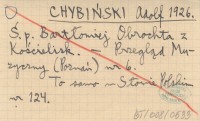 CHYBIŃSKI Adolf 1926.
Ś.p. Bartłomiej Obrochta z
Kościelisk. — Przegląd Mu-
zyczny (Poznań) nr. 6.
To samo w Słowie Polskim
nr 124.